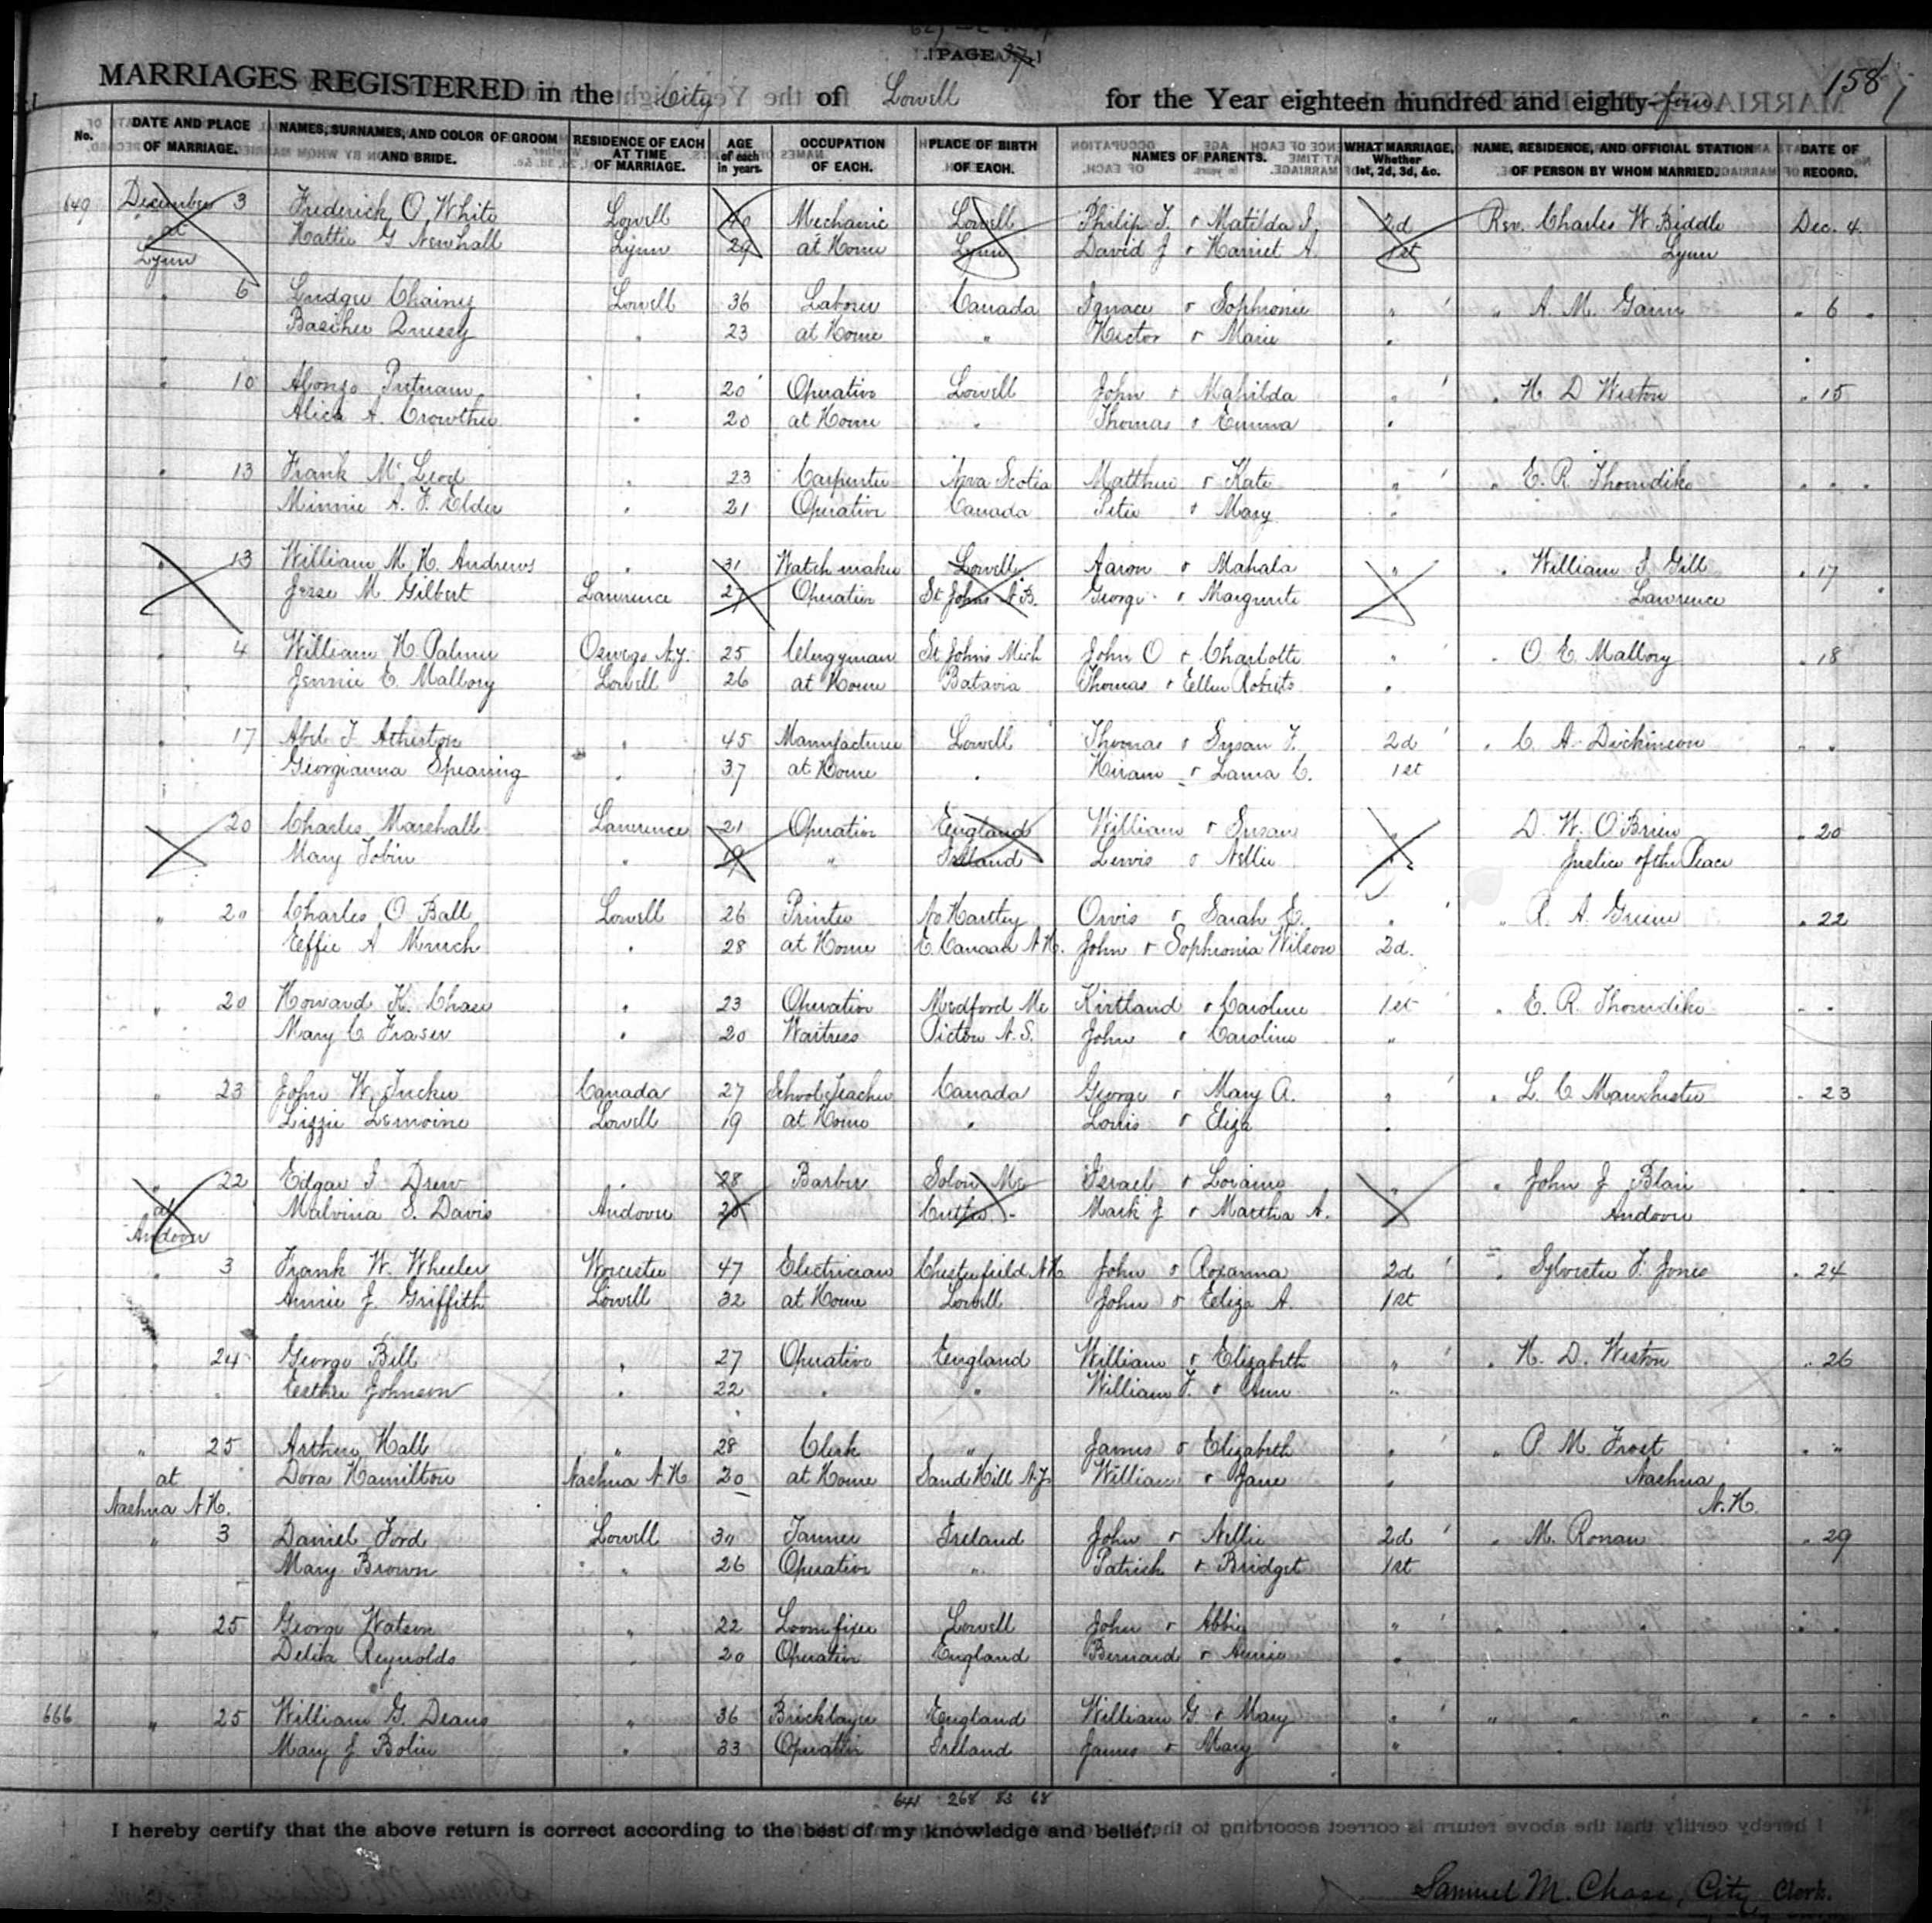 [PAGE 37]
158
MARRIAGES REGISTERED in the City of Lowell for the Year eighteen hundred and eighty-four
No. DATE AND PLACE OF MARRIAGE. NAMES, SURNAMES, AND COLOR OF GROOM AND BRIDE. RESIDENCE OF EACH AT TIME OF MARRIAGE. AGE of each in years. OCCUPATION OF EACH. PLACE OF BIRTH OF EACH. NAMES OF PARENTS. WHAT MARRIAGE, Whether 1st, 2d, 3d, &c. NAME, RESIDENCE, AND OFFICIAL STATION OF PERSON BY WHOM MARRIED. DATE OF RECORD.
649 December 3 Frederick O. White Lowell 40 Mechanic Lowell Philip T. & Matilda J. 2d Rev. Charles W. Biddle Dec. 4
at Hattie G Newhall Lynn 29 at Home Lynn David J & Harriet A. 1st Lynn
Lynn
" 6 Ludger Lowell 36 Laborer Canada Ignace & Sophronie " " A. M. " 6
23 at Home " Hector & Marie "
" 10 Alonzo Putnam " 20 Operative Lowell John & Mahilda " " H D Weston " 15
Alice A. Crowther " 20 at Home " Thomas & Emma "
" 13 Frank McLeod " 23 Carpenter Nova Scotia Matthew & Kate " " E. R. Thorndike " "
Minnie A. F. Elder " 21 Operative Canada Peter & Mary "
" 13 William M. H. Andrews " 31 Watch maker Lowell Aaron & Mahala " " William I. Gill " 17
Jesse M Gilbert Lawrence 27 Operative St Johns N.B. George & Marguerite Lawrence
" 4 William H. Palmer Oswego N.Y. 25 Clergyman St Johns Mich John O & Charlotte " " O. E. Mallory " 18
Jennie E. Mallory Lowell 26 at Home Batavia Thomas & Ellen Roberts "
" 17 Abel T. Atherton " 45 Manufacturer Lowell Thomas & Susan F. 2d " C. A. Dickinson " "
Georgianna Spearing " 37 at Home " Hiram & Laura C. 1st
20 Charles Marshall Lawrence 21 Operative England William & Susan " D. W. O'Brien " 20
Mary Tobin " 19 " Ireland Lewis & Nellie Justice of the Peace
" 20 Charles O Ball Lowell 26 Printer No Hartley Orvis & Sarah E. " " R. A. Greene " 22
Effie A Murch " 28 at Home E. Canaan N.H. John & Sophronia Wilson 2d.
" 20 Howard K. Chase " 23 Operative Medford Me Kirtland & Caroline 1st " E. R. Thorndike " "
Mary C Fraser " 20 Waitress Pictou N.S. John & Caroline "
" 23 John W. Tucker Canada 27 School Teacher Canada George & Mary A. " " L. C Manchester " 23
Lizzie Lemoine Lowell 19 at Home " Louis & Eliza "
" 22 Edgar I. Drew " 28 Barber Solon Me Israel & Loraine " " John J Blair "
at Malvina S. Davis Andover 25 Cutler " Mark J & Martha A. Andover
Andover
" 3 Frank W. Wheeler Worcester 47 Electrician Chesterfield N.H John & Roxanna 2d " Sylvester F. Jones " 24
Annie J. Griffith Lowell 32 at Home Lowell John & Eliza A. 1st
" 24 George Bill " 27 Operative England William & Elizabeth " " H. D. Weston " 26
Esther Johnson " 22 " " William T. & Ann "
" 25 Arthur Hall " 28 Clerk " James & Elizabeth " " P. M. Frost " "
at Dora Hamilton Nashua N.H 20 at Home Sand Hill N.Y. William & Jane " Nashua
Nashua N.H. N.H.
" 3 Daniel Ford Lowell 30 Tanner Ireland John & Nellie 2d " M. Ronan " 29
Mary Brown " 26 Operative " Patrick & Bridget 1st
" 25 George Watson " 22 Loom fixer Lowell John & Abbie " " " " " "
Delia Reynolds " 20 Operative England Bernard & Annie "
666 " 25 William G. Deans " 36 Bricklayer England William G. & Mary " " " " " " "
Mary J Bolin " 33 Operative Ireland James & Mary "
641 268 83 68
I hereby certify that the above return is correct according to the best of my knowledge and belief.
Samuel M. Chase, City Clerk.